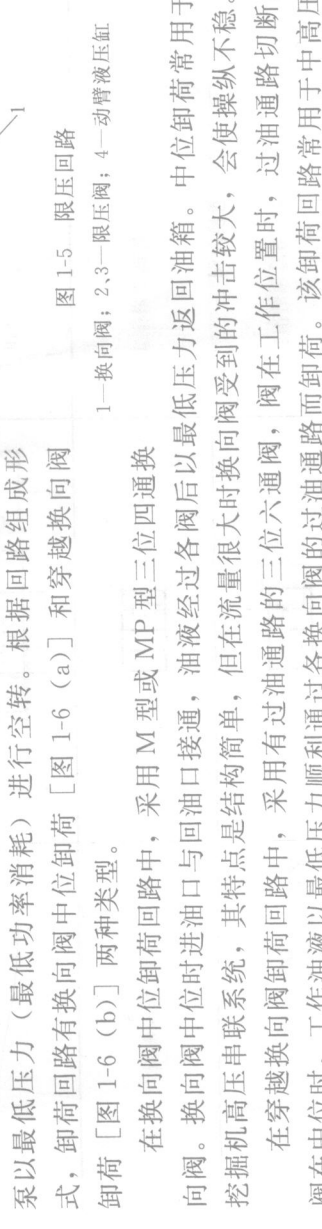 1
图 1-5 限压回路
1—换向阀；2,3—限压阀；4—动臂液压缸
泵以最低压力（最低功率消耗）进行空转。根据回路组成形
式，卸荷回路有换向阀中位卸荷［图 1-6（a）］和穿越换向阀
卸荷［图 1-6（b）］两种类型。
在换向阀中位卸荷回路中，采用 M 型或 MP 型三位四通换
向阀。换向阀中位时进油口与回油口接通，油液经过各阀后以最低压力返回油箱。中位卸荷常用于
挖掘机高压串联系统，其特点是结构简单，但在流量很大时换向阀受到的冲击较大，会使操纵不稳。
在穿越换向阀卸荷回路中，采用有过油通路的三位六通阀，阀在工作位置时，过油通路切断
阀在中位时，工作油液以最低压力顺利通过各换向阀的过油通路而卸荷。该卸荷回路常用于中高压